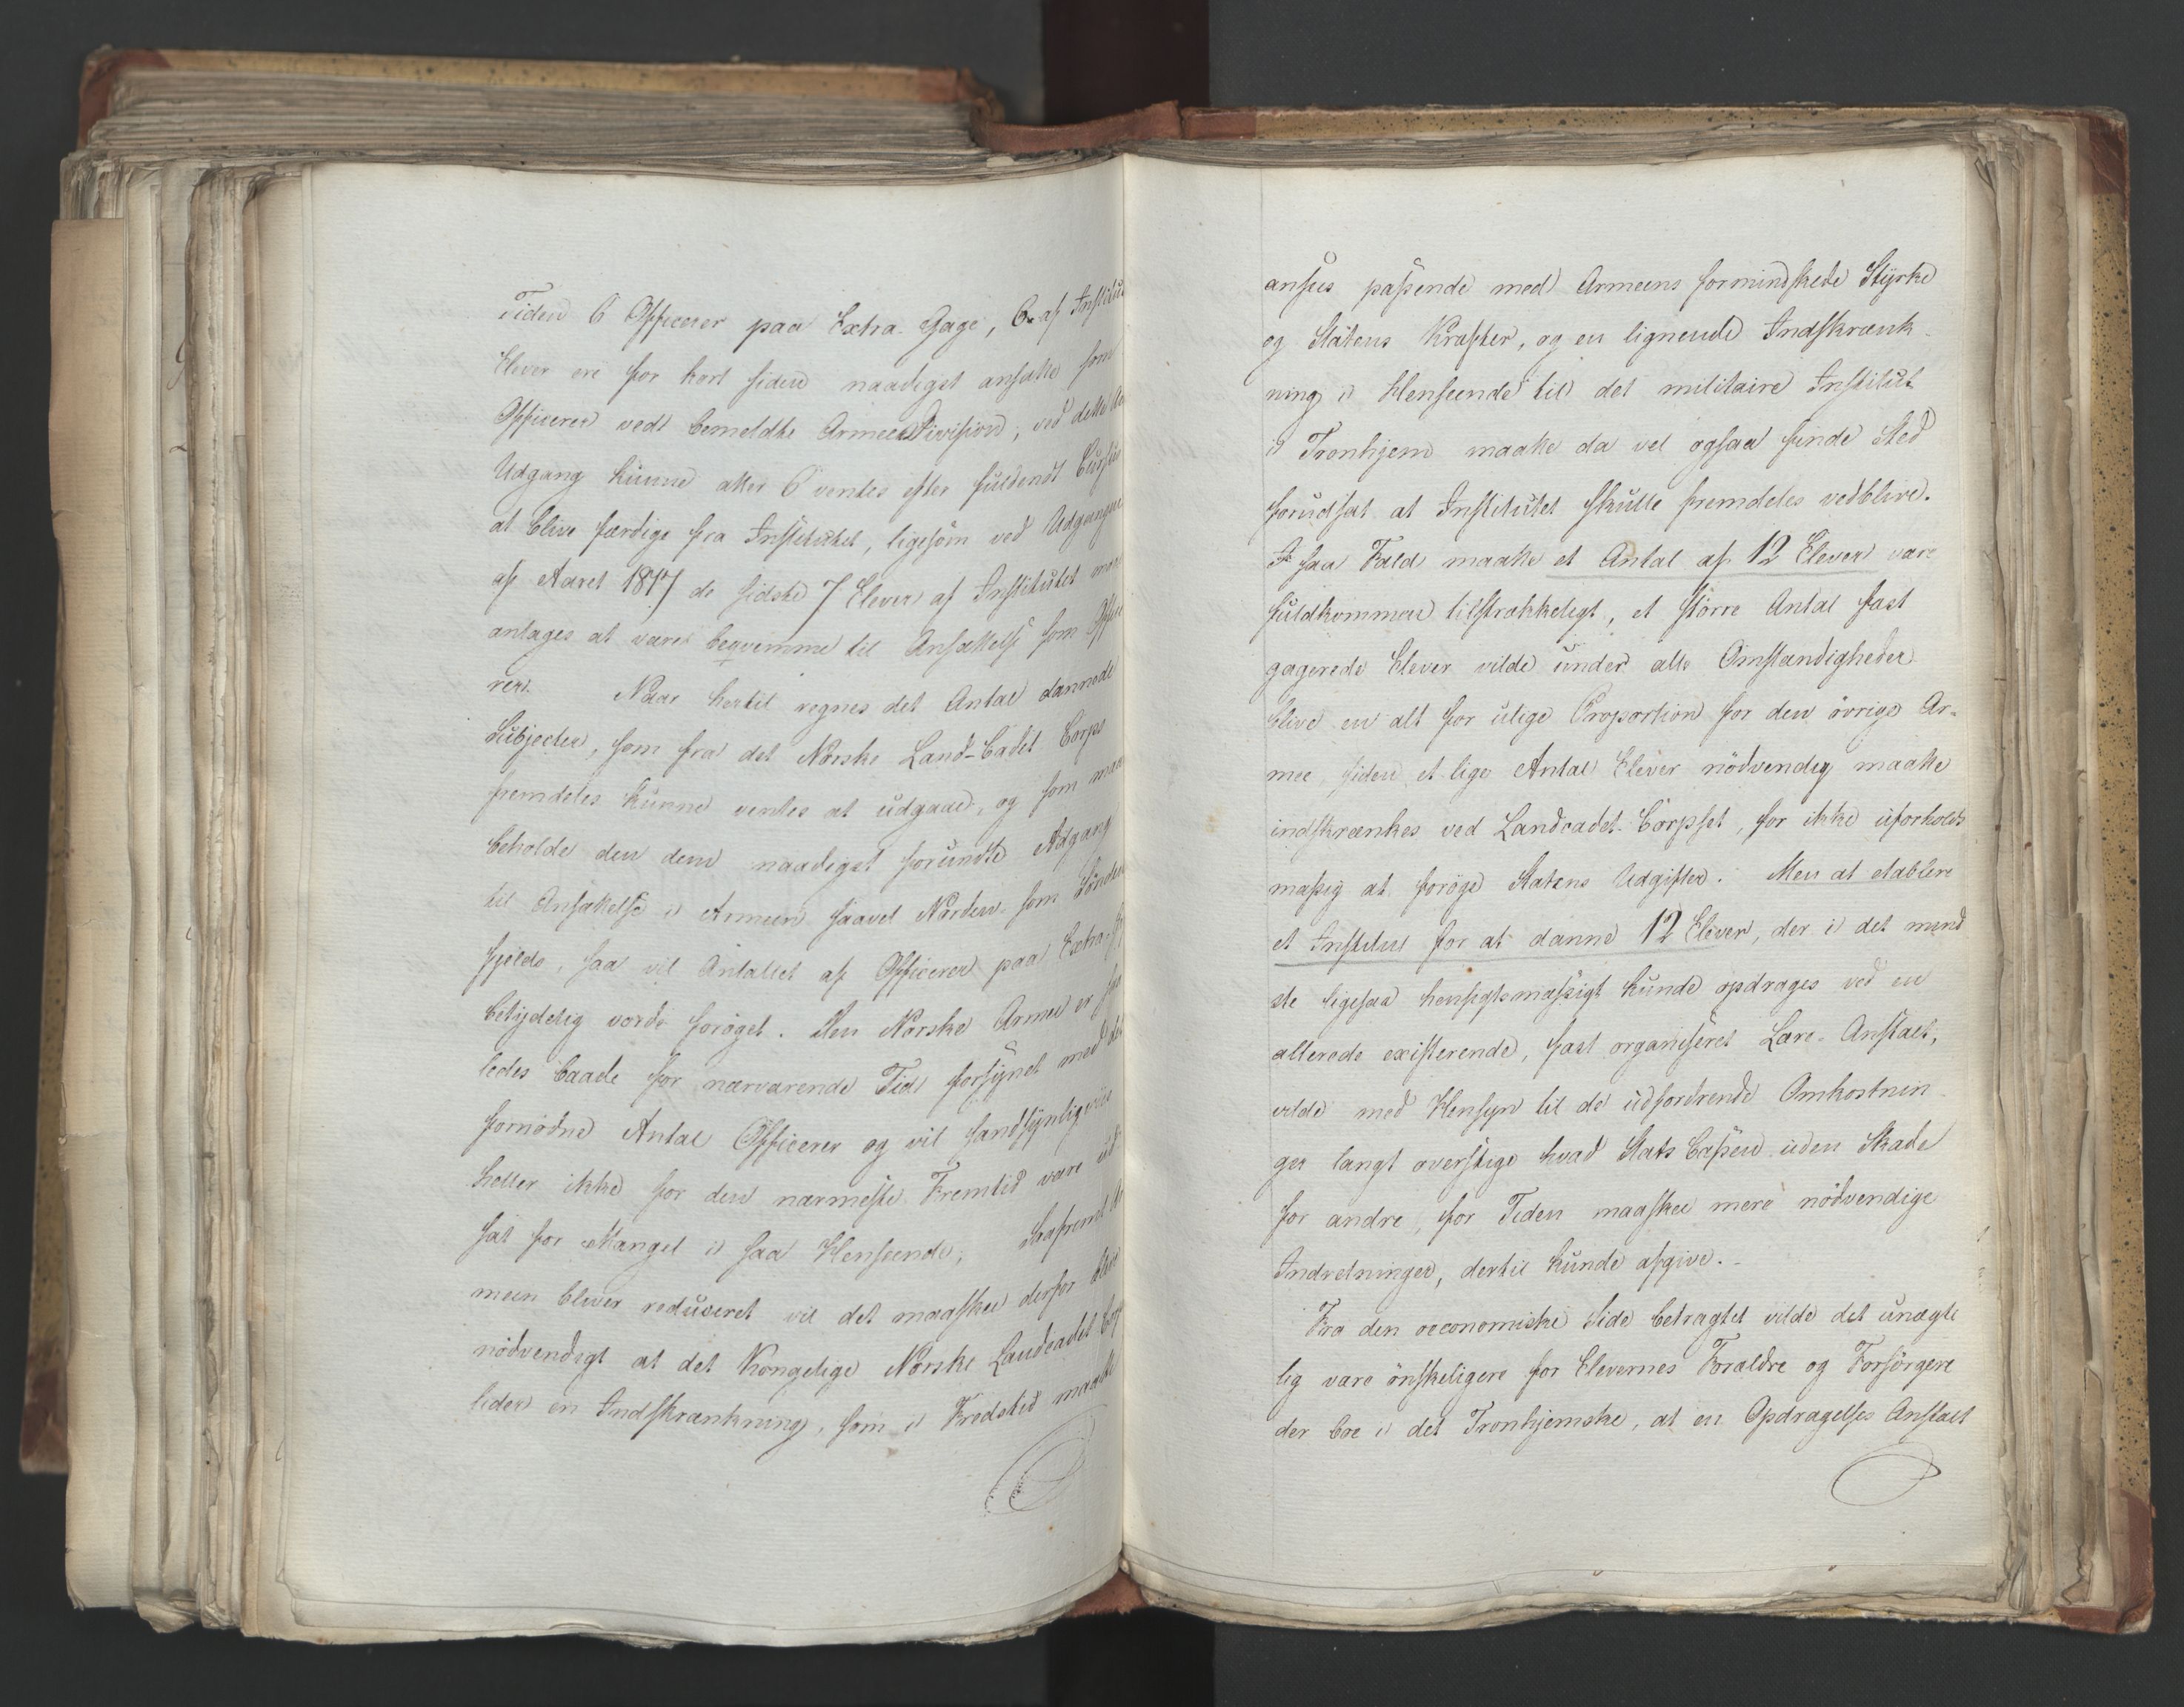 Tiden 6 Officerer paa Extra Gage, 6 af Institut
Elever ere for kort siden naadigst ansatte som
Officerer ved bemeldte Armee Division, ved dette
Udgang kunne atter 6 ventes efter fuldendt Cursus
at blive færdige fra Institutet, ligesom ved Udgangen
af Aaret 1817 de sidste 7 Elever af Institutet
antages at være beqvemme til Ansættelse som Office
rer. Naar hertil regnes det Antal dannede
Subjecter, som fra det Norske Land-Cadet Corps
fremdeles kunne ventes at udgaae, og som maae
beholde den dem naadigst forundte Adgang
til Ansættelse i Armeen saavel Norden- som Sönden
fjelds, saa vil Antallet af Officerer paa Extra
betydelig vorde foröget. Den Norske Armee er
ledes baade for nærværende Tid forsynet med det
fornödne Antal Officerer og vil sandsynligviis
heller ikke for den nærmeste Fremtid være ud
sat for Mangel i saa Henseende; Saafremt
meen bliver reduceret vil det maaskee derfor blive
nödvendigt at det Kongelige Norske Landcadet Corps
lider en Indskrænkning, som i Fredstid maatte
ansees passende med Armeens formindskede Styrke
og Statens Kræfter, og en lignende Indskrænk
ning i Henseende til det militaire Institut
i Tronhjem maatte da vel ogsaa finde Sted
forudsat at Institutet skulle fremdeles vedblive.
I saa Fald maatte et Antal af 12 Elever være
fuldkommen tilstrækkeligt, et större Antal fast
gagerede Elever vilde under alle Omstændigheder
blive en alt for ulige Proportion for den övrige Ar-
mee, siden et lige Antal Elever nödvendig maatte
indskrænkes ved Landcadet-Corpset, for ikke uforholds
mæssig at foröge Statens Udgifter. Men at etablere
et Institut for at danne 12 Elever, der i det mind
ste ligesaa hensigtsmæssigt kunde opdrages ved en
allerede existerende, fast organiseret Lære-Anstalt,
vilde med Hensyn til de udfordrende Omkostnin
ger langt overstige hvad Stats Cassen uden Skade
for andre, for Tiden maaskee mere nödvendige
Indretninger, dertil kunde afgive.-
Fra den oeconomiske Side betragtet vilde det unægte
lig være önskeligere for Elevernes Forældre og Forsörgere
der boe i det Tronhjemske, at en Opdragelses Anstalt